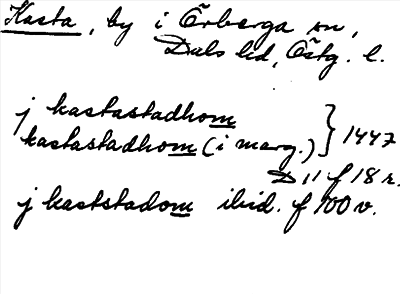 Kasta, by i Örberga sn,
Dals hd, Östg. l.
j kastastadhom
kastastadhom (i marg.) } 1447
D 11 f 18 r.
j kaststadom ibid. f 100 v.